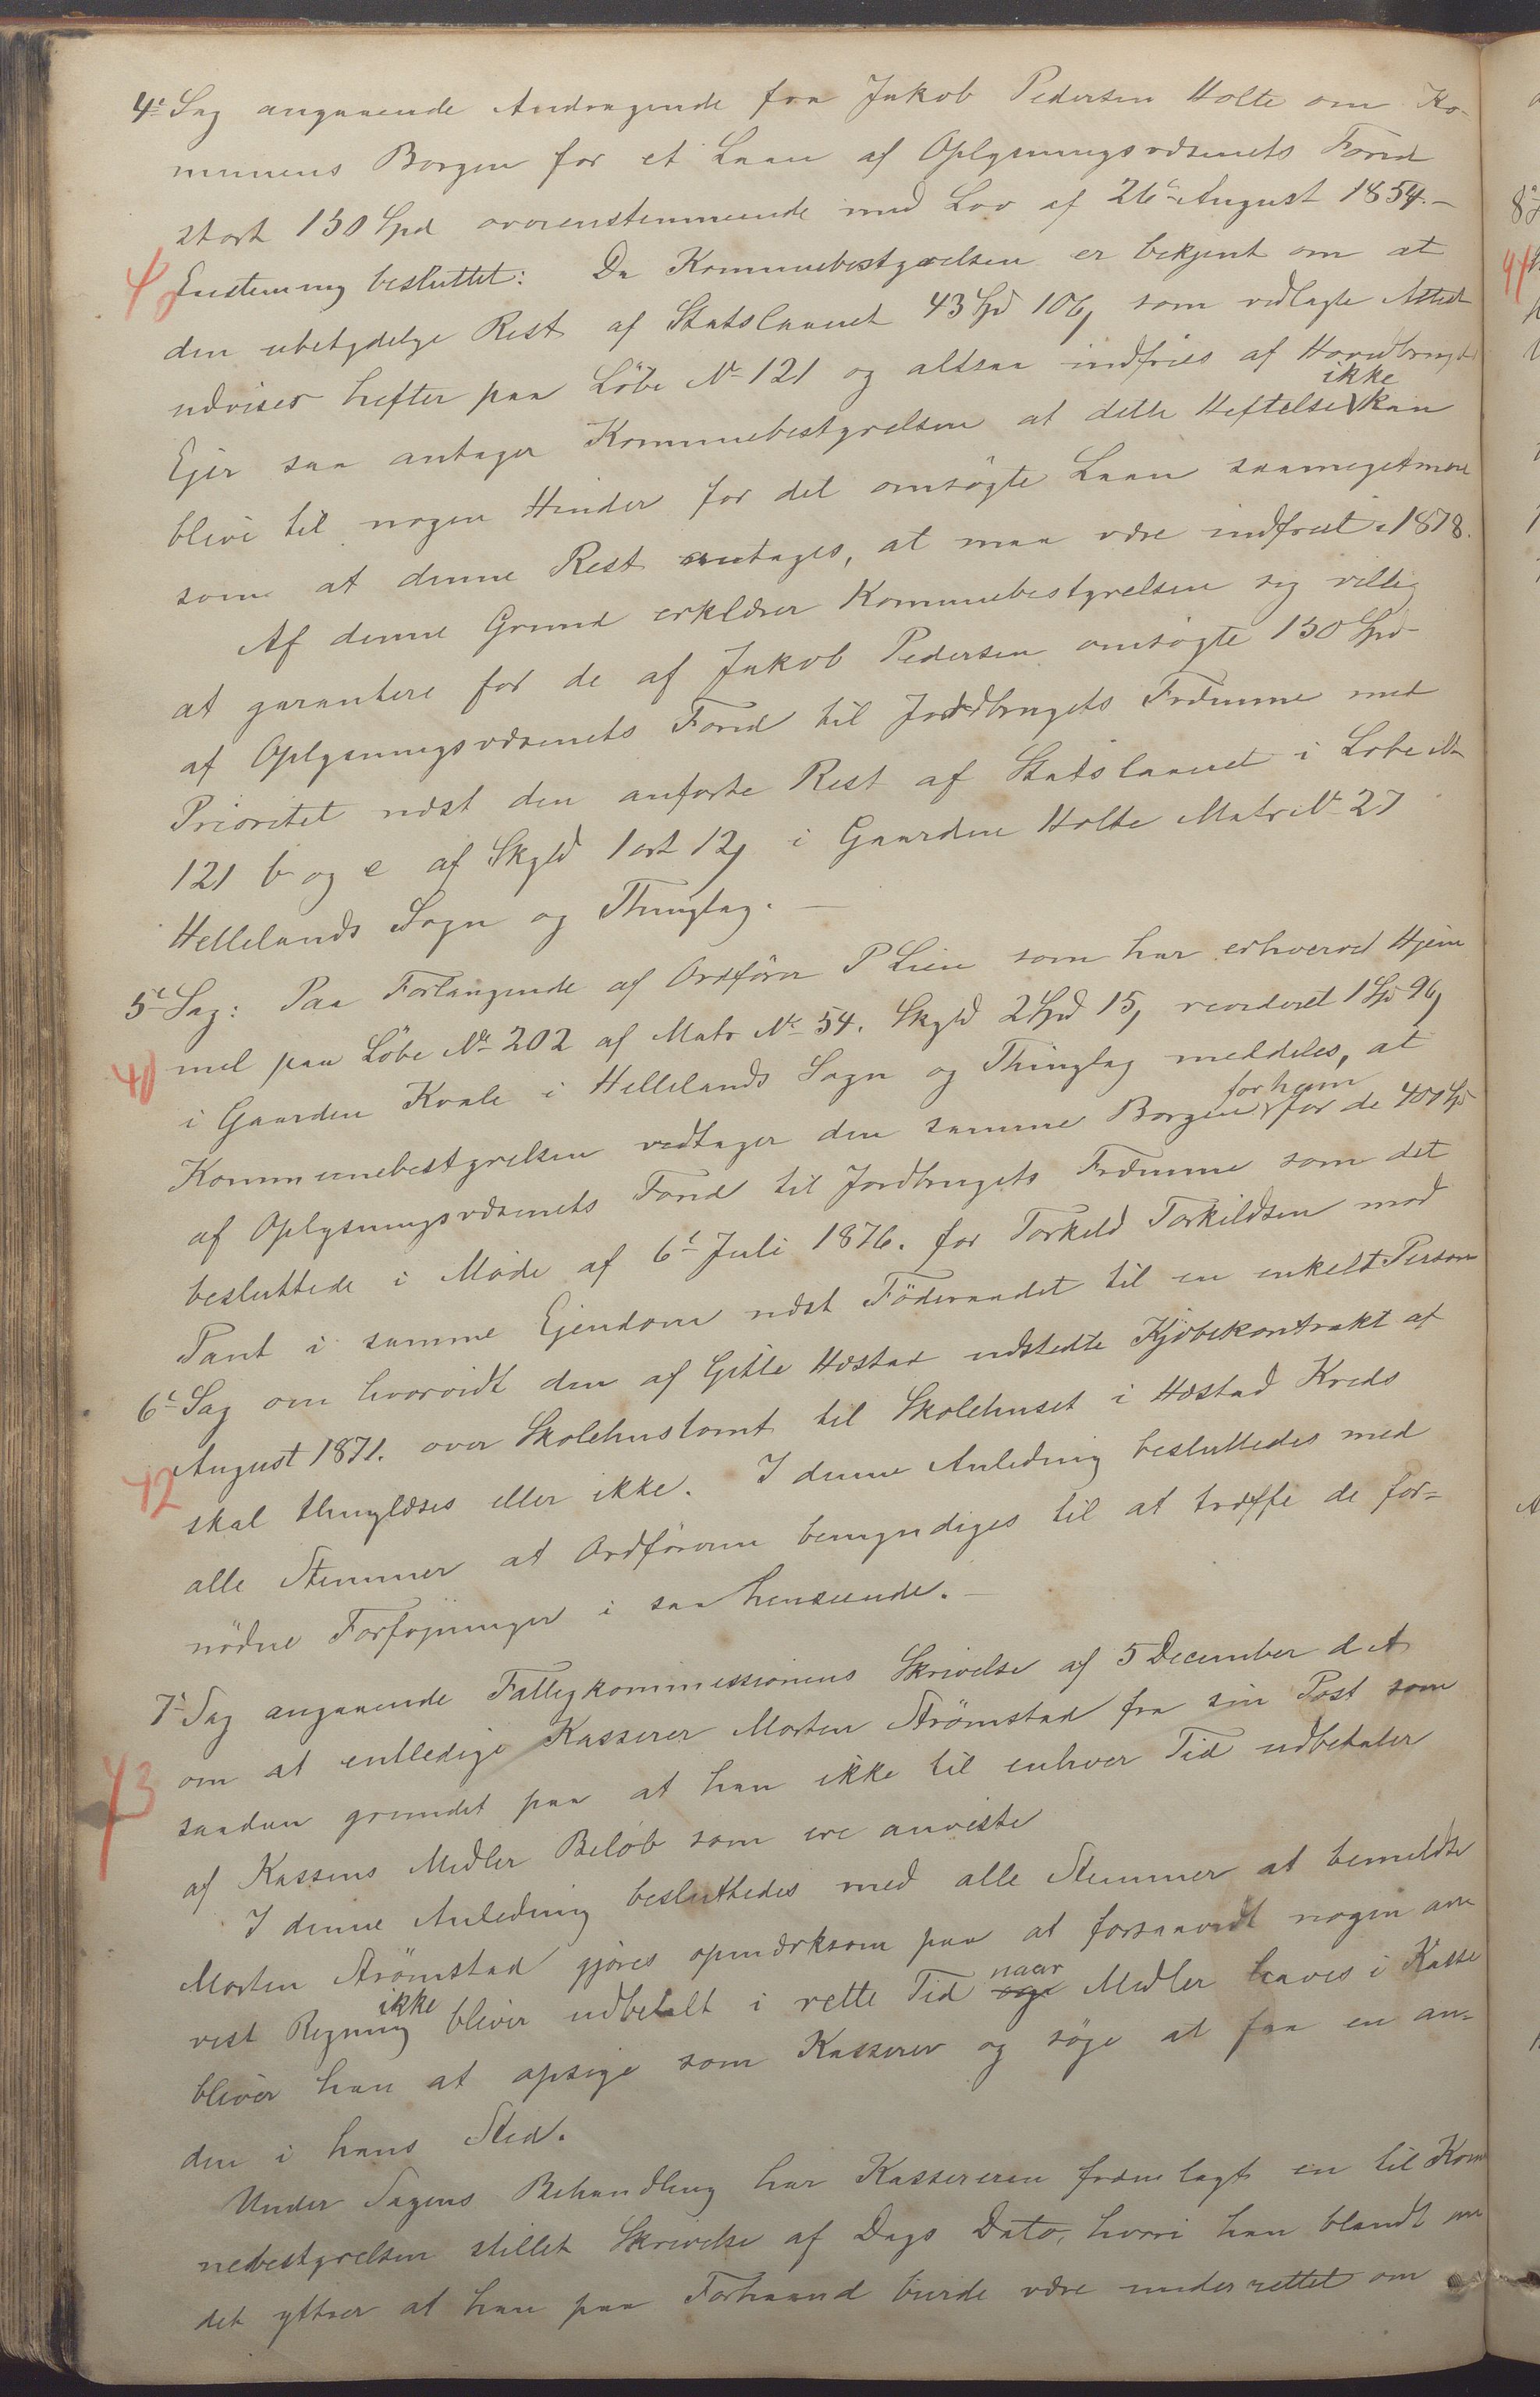 4de Sag angaaende Andragende fra Jakob Pedersen Holte om Ko-
munens Borgen for et Laan af Oplysningsvæsenets Fond
stort 150 Spd overenstemmende med Lov af 26de August 1854.-
40 Enstemmig besluttet: Da Kommunebestyrelsen er bekjent om at
den ubetydelige Rest af Statslaanet 43 Spd 106 s som vedlagte Attest
udviser hefter paa Löbe No 121 og altsaa indfries af Hovedbrugets
Ejer saa antager Kommunebestyrelsen at dette Heftelse ikke kan
blive til nogen Hinder for det omsögte Laan saameget mere
som at denne Rest antages, at maa være indfriet i 1878.
Af denne Grund erklærer Kommunebestyrelsen sig villig
at garantere for de af Jakob Pedersen omsögte 150 Spd
af Oplysningsvæsenets Fond til Jordbrugets Fræmme med
Prioritet næst den anførte Rest af Statslaanet i Løbe No
121 b og c af Skyld 1 ort 12 s i Gaarden Holte Matr No 27
Hellelands Sogn og Thinglag. —
5te Sag: Paa Forlangende af Ordförer P Lien som har erhvervet Hjem
41 mel paa Löbe No 202 af Matr No 54. Skyld 2 Spd 15 s, revideret 1 Spd 96 s
i Gaarden Kvale i Hellelands Sogn og Thinglag meddeles, at
Kommunebestyrelsen vedtager den samme Borgen for ham for de 400 Spd
af Oplysningsvæsenets Fond til Jordbrugets Fræmme som det
besluttede i Møde af 6te Juli 1876. for Torkild Torkildsen mod
Pant i samme Ejendom næst Föderaadet til en enkelt Person
6te Sag om hvorvidt den af Gitle Hæstad udstedte Kjöbekontrakt af
42 August 1871. over Skolehustomt til Skolehuset i Hæstad Kreds
skal thinglæses eller ikke. I denne Anledning besluttedes med
alle Stemmer at Ordföreren bemyndiges til at træffe de for=
nödne Forføjninger i saa Henseende. —
7de Sag angaaende Fattigkommissionens Skrivelse af 5 December d A
43 om at entledige Kasserer Morten Strömstad fra sin Post som
saadan grundet paa at han ikke til enhver Tid udbetaler
af Kassens Midler Beløb som ere anviste
I denne Anledning besluttedes med alle Stemmer at bemeldte
Morten Strömstad gjöres opmærksom paa at forsaavidt nogen an-
vist Regning ikke bliver udbetalt i rette Tid naar Midler haves i Kasse
bliver han at opsige som Kasserer og söge at faa en an-
den i hans Sted.
Under Sagens Behandling har Kassereren fræmlagt en til Kom
nebestyrelsen stillet Skrivelse af Dags Dato, hvori han blandt an
det yttrer at han paa Forhaand burde være underrettet om